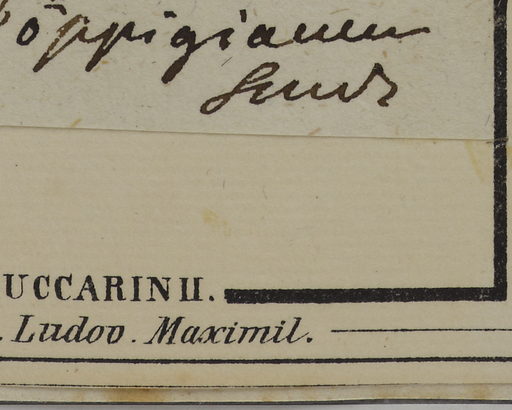 öppigianum
UCCARINII.
. Ludov. Maximil.